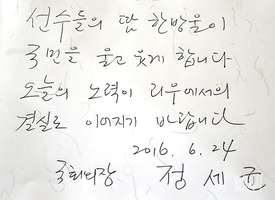 선수들의 땀 한방울이
국민을 울고 웃게 합니다
오늘의 노력이 리우에서의
결실로 이어지기 바랍니다
2016. 6. 24
국회의장 정세균